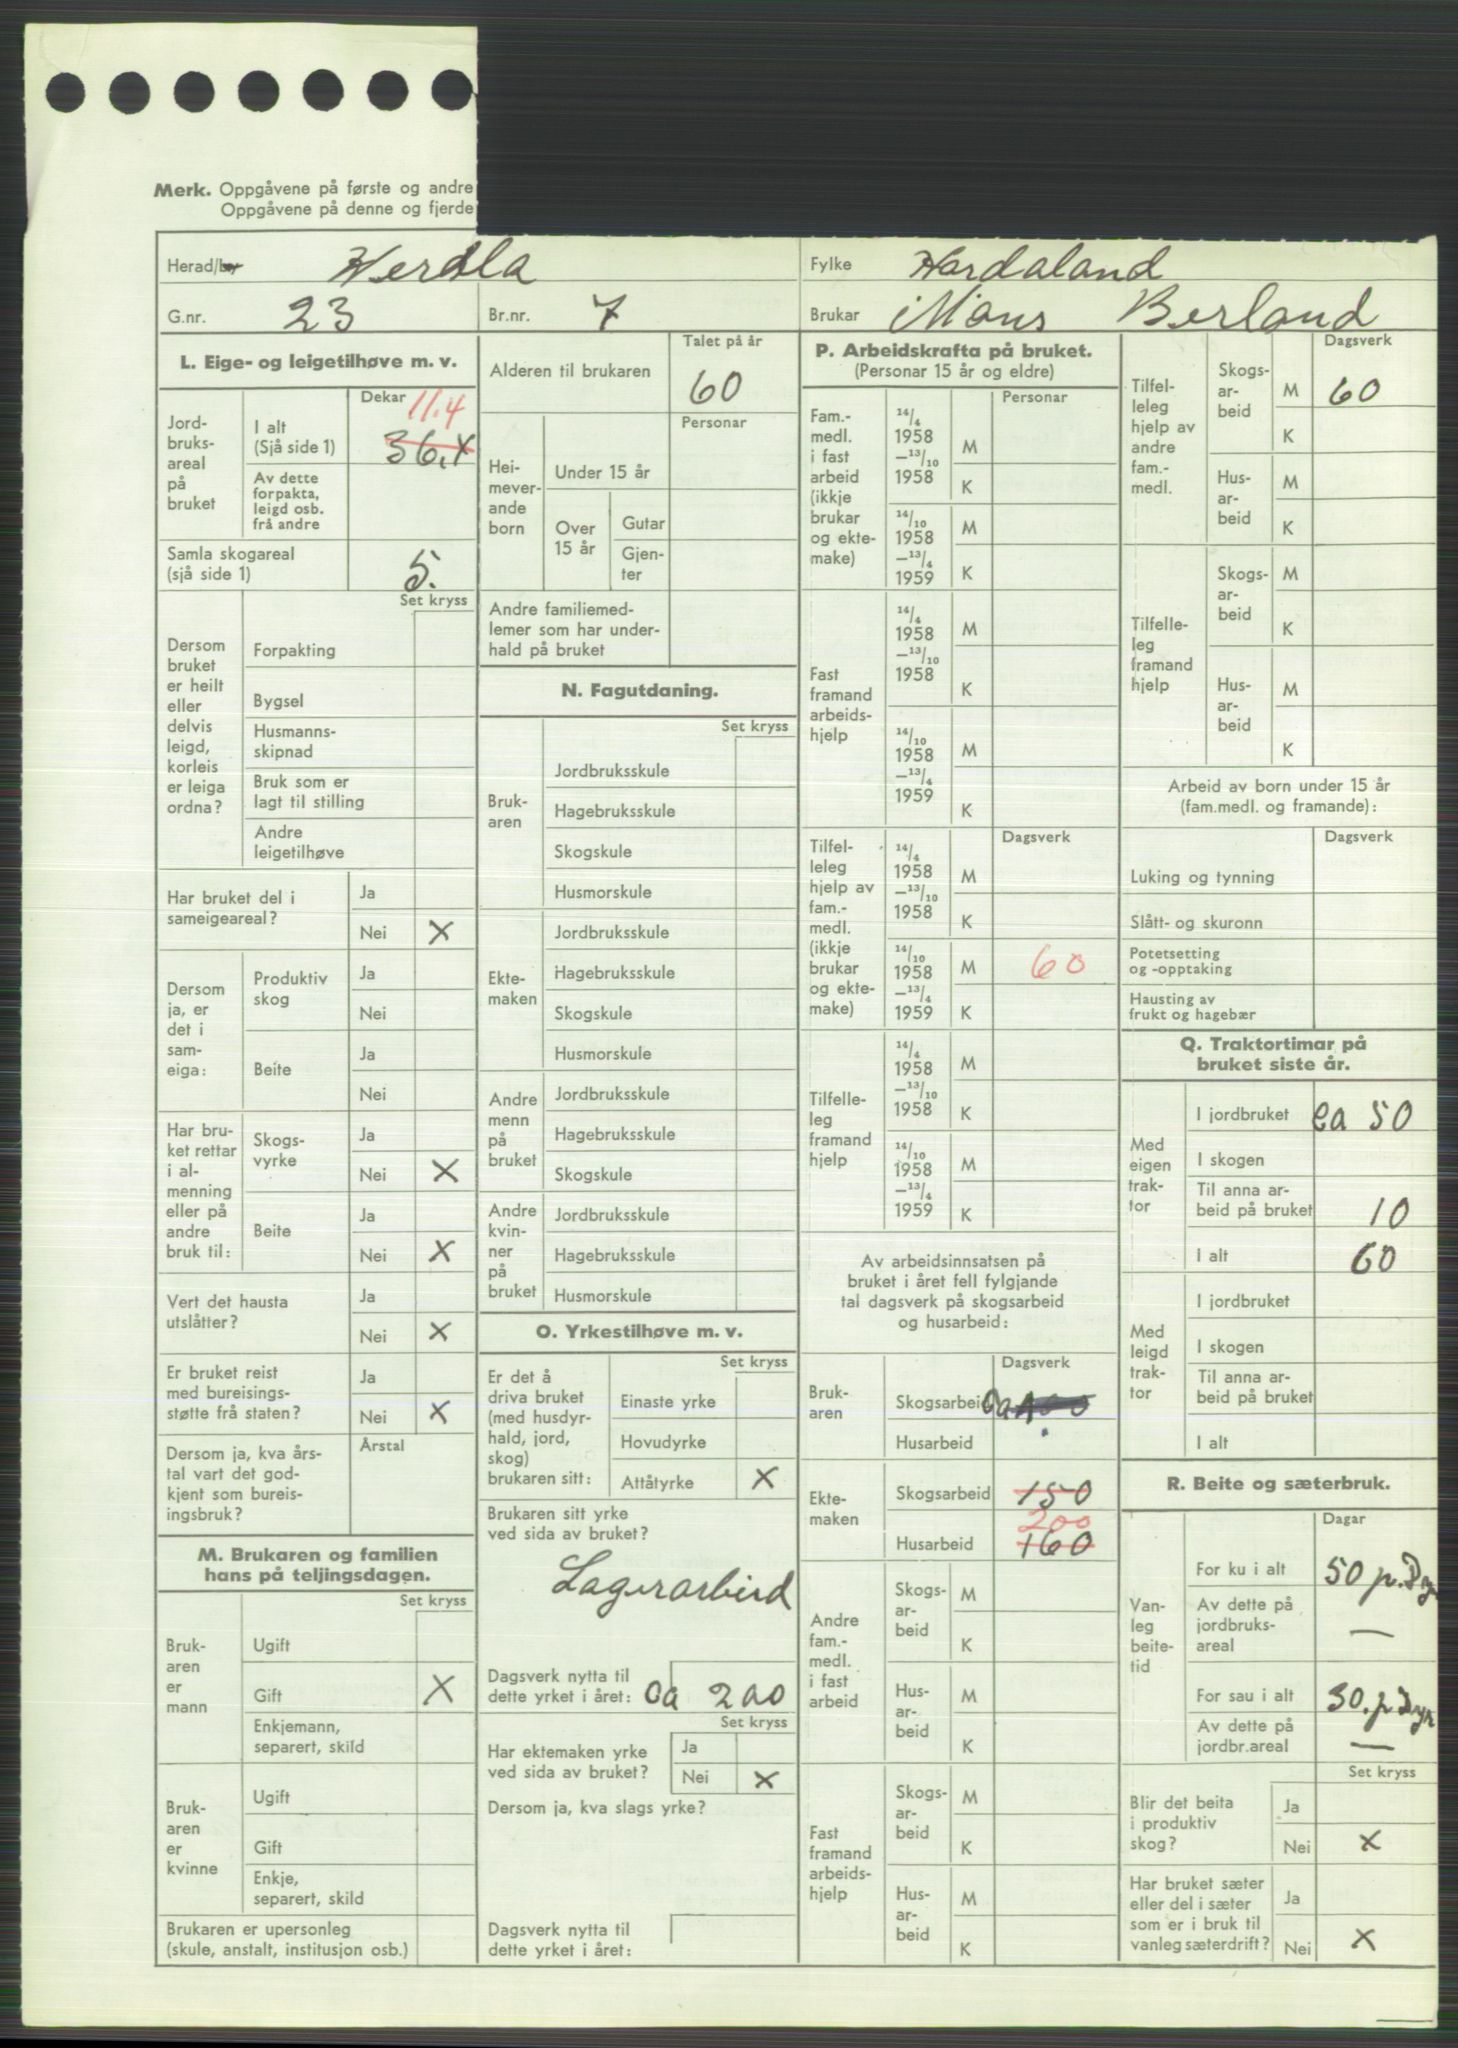 Merk. Oppgåvene på første og andre
Oppgåvene på denne og fjerde
Herad/by Herdla
Fylke Hordaland
G.nr. 23
Br.nr. 7
Brukar Mons Berland
L. Eige- og leigetilhøve m. v.
Dekar
Jord-
bruks-
areal
på
bruket
I alt
(Sjå side 1)
11.4
36.
Av dette
forpakta,
leigd osb.
frå andre
Samla skogareal
(sjå side 1)
5.
Set kryss
Dersom
bruket
er heilt
eller
delvis
leigd,
korleis
er leiga
ordna?
Forpakting
Bygsel
Husmanns-
skipnad
Bruk som er
lagt til stilling
Andre
leigetilhøve
Har bruket del i
sameigeareal?
Ja
Nei X
Dersom
ja, er
det i
sam-
eiga:
Produktiv
skog
Ja
Nei
Beite
Ja
Nei
Har bru-
ket rettar
i al-
menning
eller på
andre
bruk til:
Skogs-
vyrke
Ja
Nei X
Beite
Ja
Nei X
Vert det hausta
utslåtter?
Ja
Nei X
Er bruket reist
med bureisings-
støtte frå staten?
Ja
Nei X
Dersom ja, kva års-
tal vart det god-
kjent som bureis-
ingsbruk?
Årstal
M. Brukaren og familien
hans på teljingsdagen.
Set kryss
Bruk-
aren
er
mann
Ugift
Gift X
Enkjemann,
separert, skild
Bruk-
aren
er
kvinne
Ugift
Gift
Enkje,
separert, skild
Brukaren er upersonleg
(skule, anstalt, institusjon osb.)
Talet på år
Alderen til brukaren 60
Personar
Hei-
mever-
ande
born
Under 15 år
Over
15 år
Gutar
Gjen-
ter
Andre familiemed-
lemer som har under-
hald på bruket
N. Fagutdaning.
Set kryss
Bruk-
aren
Jordbruksskule
Hagebruksskule
Skogskule
Husmorskule
Ekte-
maken
Jordbruksskule
Hagebruksskule
Skogskule
Husmorskule
Andre
menn
på
bruket
Jordbruksskule
Hagebruksskule
Skogskule
Andre
kvin-
ner
på
bruket
Jordbruksskule
Hagebruksskule
Husmorskule
O. Yrkestilhøve m. v.
Set kryss
Er det å
driva bruket
(med husdyr-
hald, jord,
skog)
brukaren sitt:
Einaste yrke
Hovudyrke
Attåtyrke X
Brukaren sitt yrke
ved sida av bruket?
Lagerarbeid
Dagsverk nytta til
dette yrket i året: ca 200
Set kryss
Har ektemaken yrke
ved sida av bruket?
Ja
Nei X
Dersom ja, kva slags yrke?
Dagsverk nytta til
dette yrket i året:
P. Arbeidskrafta på bruket.
(Personar 15 år og eldre)
Personar
Fam.-
medl.
i fast
arbeid
(ikkje
brukar
og ekte-
make)
14/4
1958
—13/10
1958
M
K
14/10
1958
—13/4
1959
M
K
Fast
framand
arbeids-
hjelp
14/4
1958
—13/10
1958
M
K
14/10
1958
—13/4
1959
M
K
Dagsverk
Tilfel-
leleg
hjelp av
fam.-
medl.
(ikkje
brukar
og ekte-
make)
14/4
1958
—13/10
1958
M
K
14/10
1958
—13/4
1959
M 60
K
Tilfelle-
leg
framand
hjelp
14/4
1958
—13/10
1958
M
K
14/10
1958
—13/4
1959
M
K
Av arbeidsinnsatsen på
bruket i året fell fylgjande
tal dagsverk på skogsarbeid
og husarbeid:
Dagsverk
Bruk-
aren
Skogsarbeid
Husarbeid
Ekte-
maken
Skogsarbeid 150
200
Husarbeid 160
Andre
fam.-
medl.
i fast
arbeid
Skogs-
ar-
beid
M
K
Hus-
ar-
beid
M
K
Fast
framand
arbeids-
hjelp
Skogs-
ar-
beid
M
K
Hus-
ar-
beid
M
K
Dagsverk
Tilfel-
leleg
hjelp av
andre
fam.-
medl.
Skogs-
ar-
beid
M 60
K
Hus-
ar-
beid
M
K
Tilfelle-
leg
framand
hjelp
Skogs-
ar-
beid
M
K
Hus-
ar-
beid
M
K
Arbeid av born under 15 år
(fam.medl. og framande):
Dagsverk
Luking og tynning
Slått- og skuronn
Potetsetting
og -opptaking
Hausting av
frukt og hagebær
Q. Traktortimar på
bruket siste år.
Med
eigen
trak-
tor
I jordbruket ca 50
I skogen
Til anna ar-
beid på bruket 10
I alt 60
Med
leigd
trak-
tor
I jordbruket
I skogen
Til anna ar-
beid på bruket
I alt
R. Beite og sæterbruk.
Dagar
Van-
leg
beite-
tid
For ku i alt 50 p. Dyr
Av dette på
jordbruks-
areal —
For sau i alt 30. p Dyr
Av dette på
jordbr.areal —
Set kryss
Blir det beita
i produktiv
skog?
Ja
Nei X
Har bruket sæter
eller del i sæter
som er i bruk til
vanleg sæterdrift?
Ja
Nei X